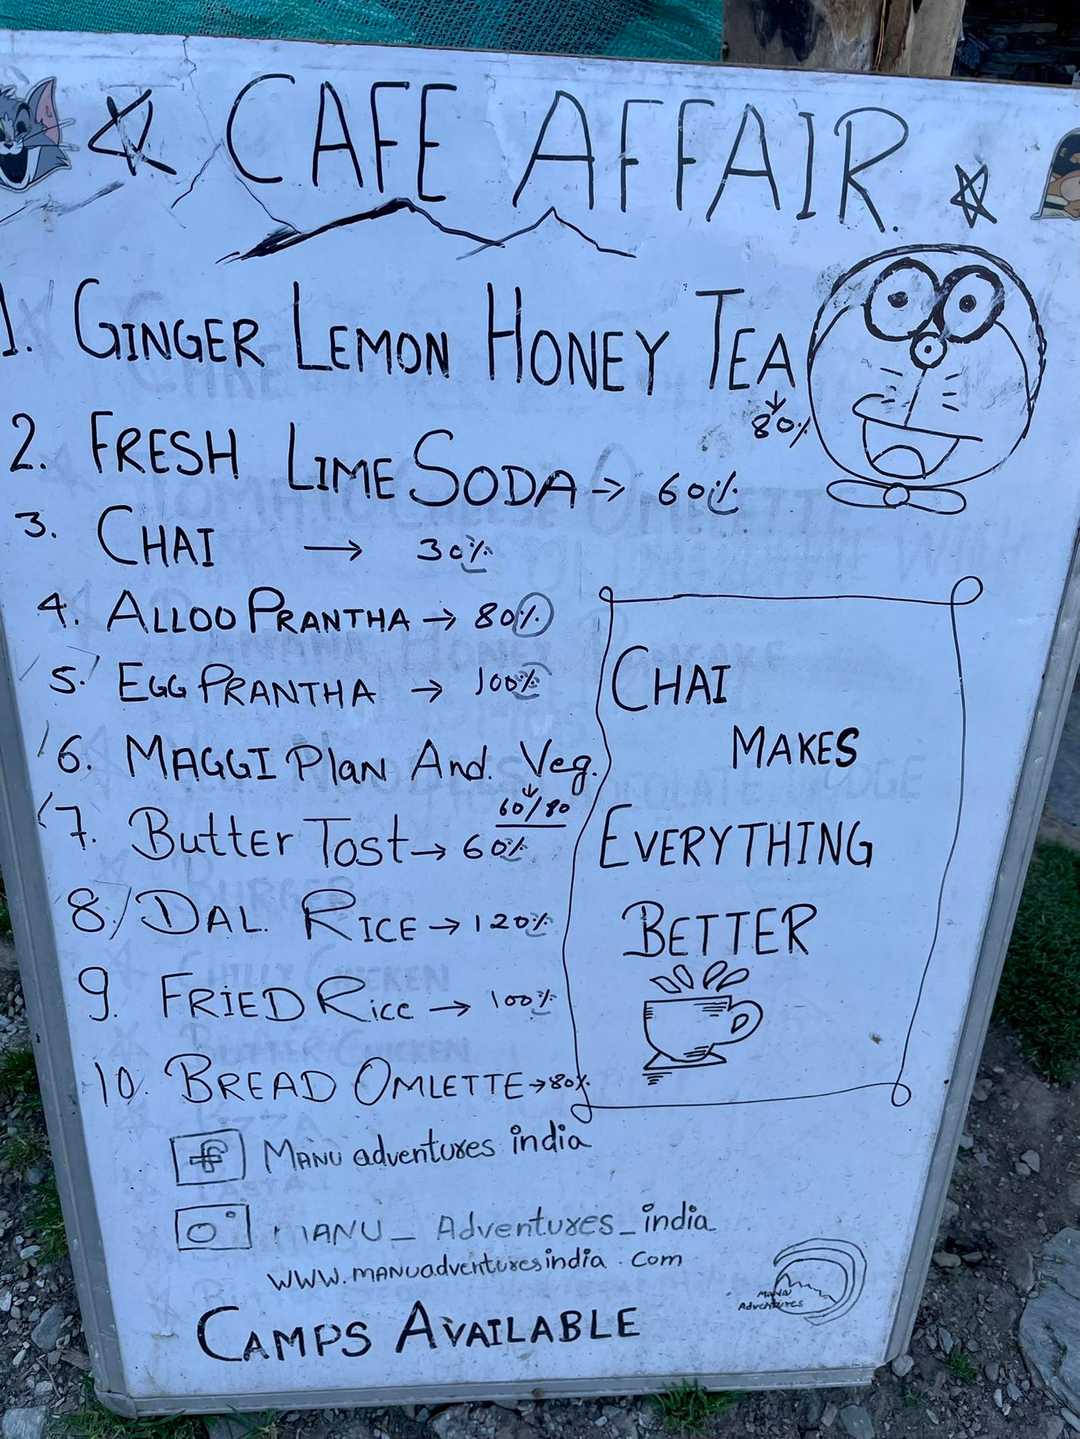 CAFE AFFAIR.
1. GINGER LEMON HONEY TEA
80%
2. FRESH LIME SODA → 60%
3. CHAI → 30%
4. ALLOO PRANTHA → 80%
5. EGG PRANTHA → 100%
6. MAGGI Plan And. Veg.
60/80
7. Butter Tost → 60%
8/ DAL. RICE → 120%
9. FRIED Rice → 100%
10. BREAD OMLETTE → 80%
CHAI
MAKES
EVERYTHING
BETTER
f MANU adventures india
MANU_ Adventures_india
www.manuadventuresindia.com
MANU
Adventures
CAMPS AVAILABLE